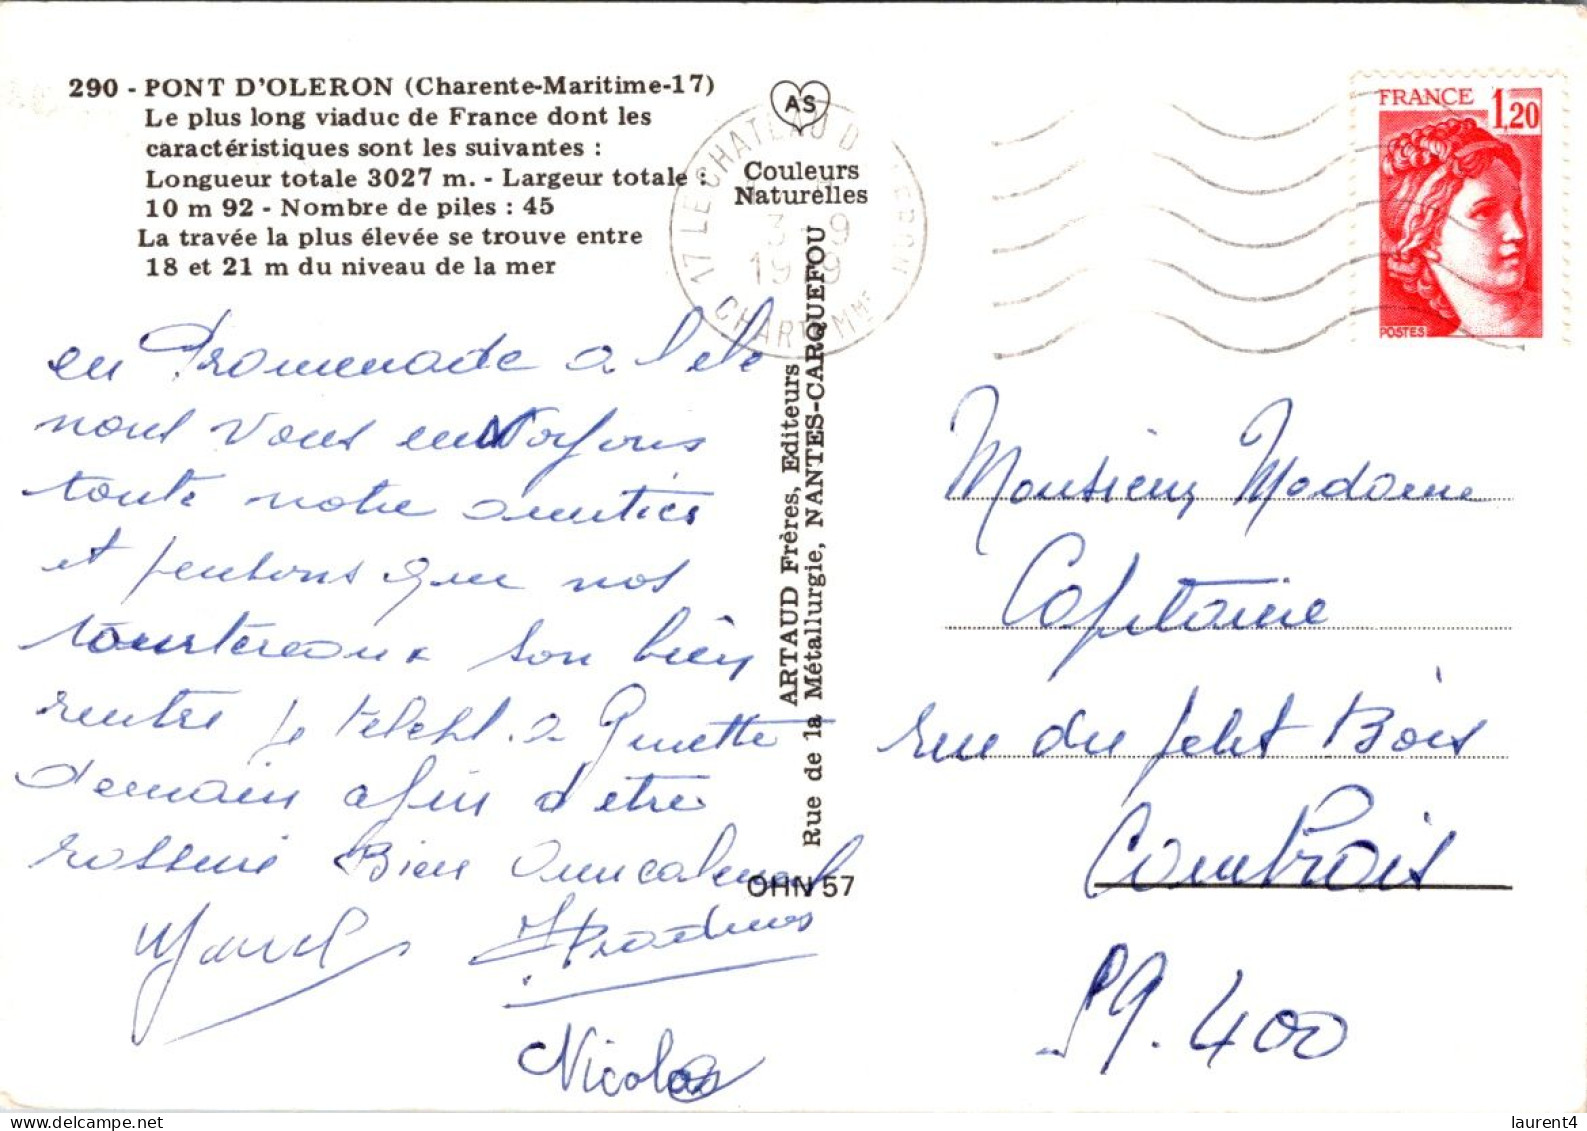 290 - PONT D'OLERON (Charente-Maritime-17)
Le plus long viaduc de France dont les
caractéristiques sont les suivantes :
Longueur totale 3027 m. - Largeur totale :
10 m 92 - Nombre de piles : 45
La travée la plus élevée se trouve entre
18 et 21 m du niveau de la mer
en Promenade a l'ele
nous vous envoyons
toute notre amitiés
et pensons que nos
tourtereaux son bien
rentre je teleph. a Ginette
demain afin d'etre
rassure Bien Amicalement
Marcel
Nicolas
AS
Couleurs
Naturelles
17 LE CHATEAU D OLERON
3 - 9
1979
CHARTE MME
ARTAUD Frères, Editeurs
Rue de la Métallurgie, NANTES-CARQUEFOU
OHN 57
FRANCE 1,20
POSTES
Monsieur Madame
Capitaine
rue du petit Bois
59.400
laurent4